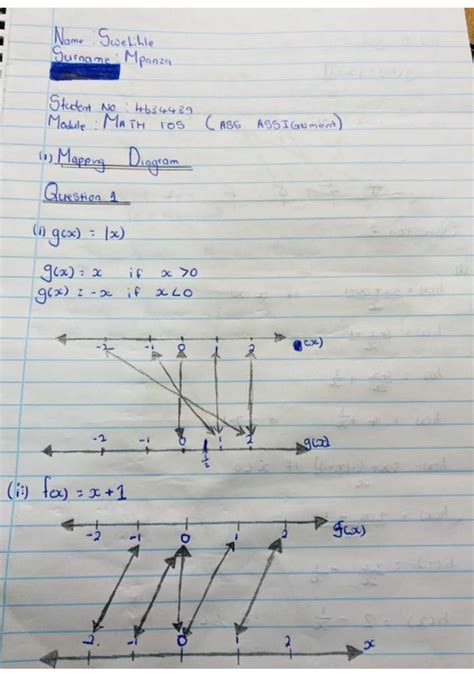 Name : Swelihle
Surname : Mpanza
Student No : 4634439
Module : MATH 105 ( ASS ASSIGNMENT)
(1) Mapping Diagram
Question 1
(i) g(x) = |x)
g(x) = x if x >0
g(x) = -x if x<0
-2 -1 0 1 2 (x)
-2 -1 0 1/2 1 2 g(x)
(ii) f(x) = x+1
-2 -1 0 1 2 f(x)
-2 -1 0 1 2 x